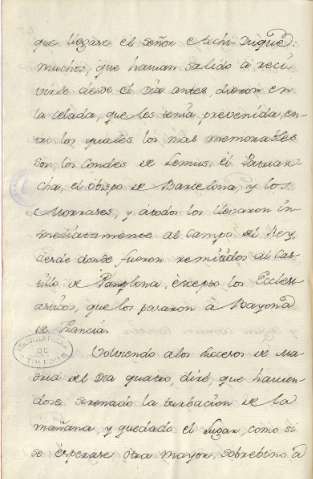 que llegase el señor Archi-Duque:
muchos, que havian salido a reci-
virle desde el dia antes, dieron en
la celada, que les tenia prevenida, en-
tre los quales los mas memorables
son, los Condes de Lemus, el Patriar-
cha, el obispo de Barcelona, y los
Monrases, y átodos los llevaron in-
mediatamente al campo del Rey,
desde donde fueron remitidos al Cas-
tillo de Pamplona, excepto los Eccles-
iasticos, que los pasaron à Bayona
de Francia.
Volviendo alos sucesos de Ma-
drid del dia quatro, diré, que havien-
dose serenado la turbacion de la
mañana, y quedado el Lugar, como si
se esperase otra mayor, sobrevino à